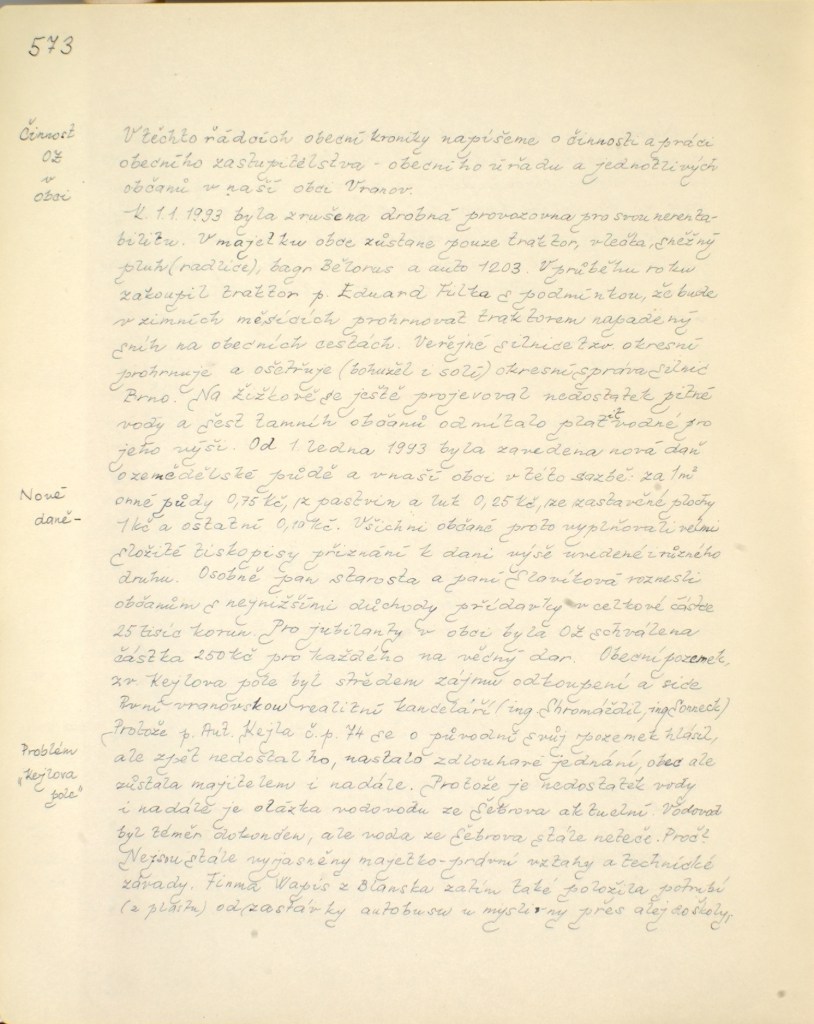 573
Činnost
OZ
v
obci
V těchto řádcích obecní kroniky napíšeme o činnosti a práci
obecního zastupitelstva - obecního úřadu a jednotlivých
občanů v naší obci Vranov.
K 1.1.1993 byla zrušena drobná provozovna pro svou nerenta-
bilitu. V majetku obce zůstane pouze traktor, vlečka, sněžný
pluh (radlice), bagr Bělorus a auto 1203. V průběhu roku
zakoupil traktor p. Eduard Filka s podmínkou, že bude
v zimních měsících prohrnovat traktorem napadený
sníh na obecních cestách. Veřejné silnice tzv. okresní
prohrnuje a ošetřuje (bohužel i solí) okresní správa silnic
Brno. Na Žižkově se ještě projevoval nedostatek pitné
vody a šest tamních občanů odmítalo platit vodné pro
jeho výši. Od 1. ledna 1993 byla zavedena nová daň
o zemědělské půdě a v naší obci v této sazbě: za 1m²
orné půdy 0,75 Kč, z pastvin a luk 0,25 Kč, ze zastavěné plochy
1 kč a ostatní 0,10 Kč. Všichni občané proto vyplňovali velmi
složité tiskopisy přiznání k dani výše uvedené různého
druhu. Osobně pan starosta a paní Slavíková roznesli
občanům s nejnižšími důchody přídavky v celkové částce
25 tisíc korun. Pro jubilanty v obci byla OZ schválena
částka 250 kč pro každého na věcný dar. Obecní pozemek,
zv. Kejlova pole byl středem zájmu odkoupení a sice
První vranovskou realitní kanceláří (ing Shromáždil, ing Sonneck)
Protože p. Ant. Kejla č.p. 74 se o původní svůj pozemek hlásil,
ale zpět nedostal ho, nastalo zdlouhavé jednání, obec ale
zůstala majitelem i nadále. Protože je nedostatek vody
i nadále je otázka vodovodu ze Šebrova aktuelní. Vodovod
byl téměř dokončen, ale voda ze Šebrova stále neteče. Proč?
Nejsou stále vyjasněny majetko-právní vztahy a technické
závady. Firma Wapis z Blanska zatím také položila potrubí
(z plastu) od zastávky autobusu u myslivny přes alej do školy,
Nové
daně-
Problém
„Kejlova
pole"